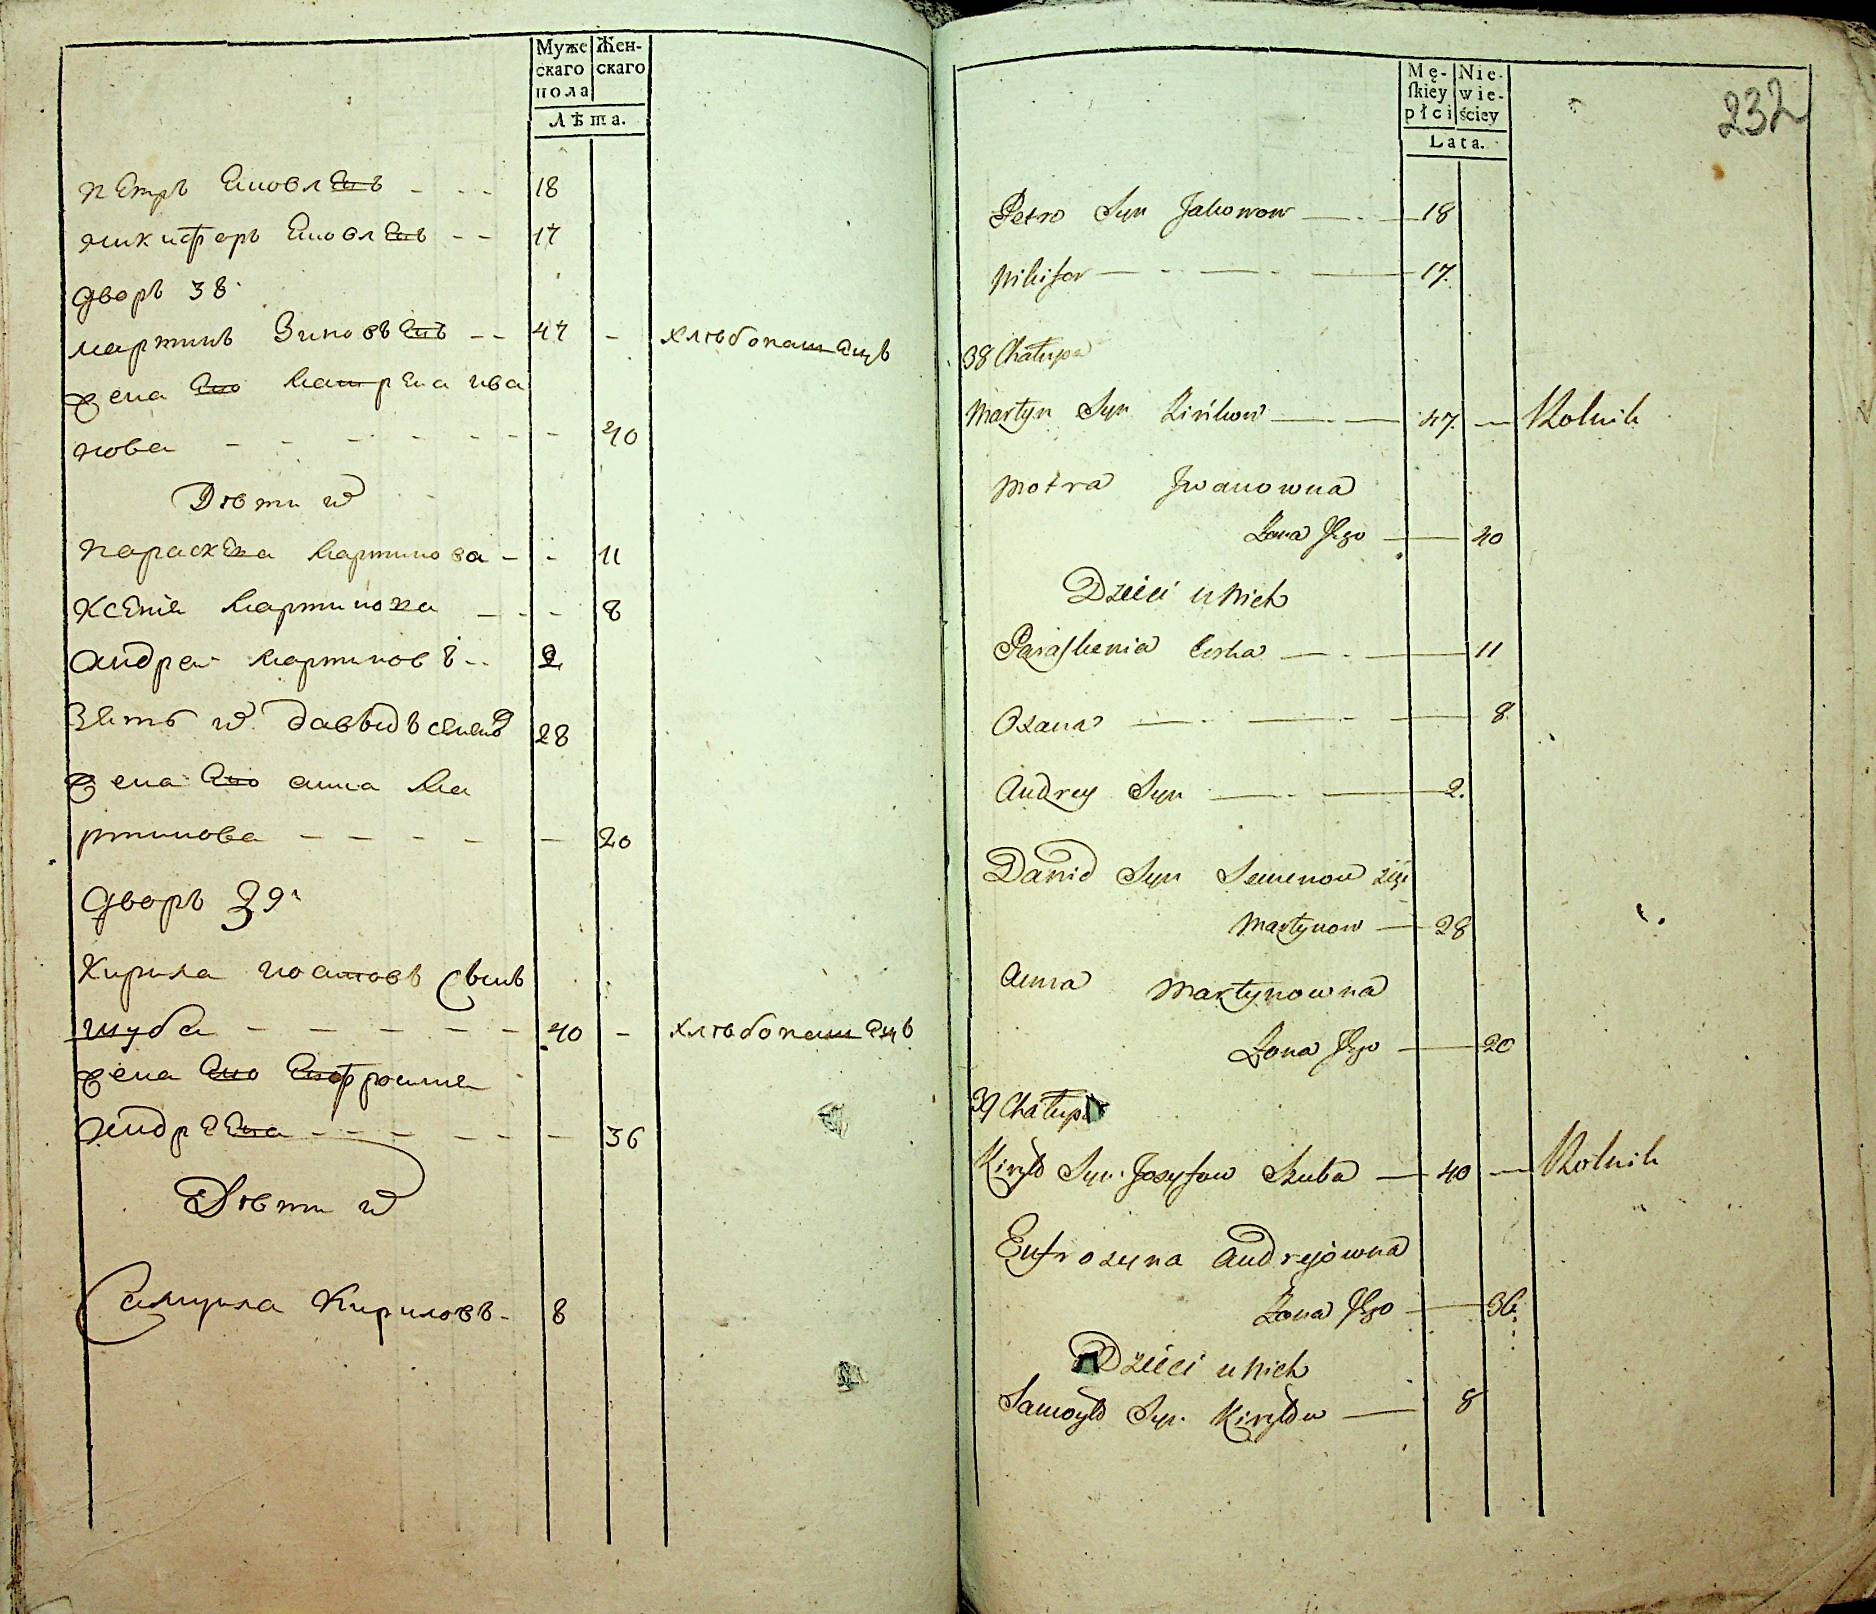 Муже
скаго
пола
Жен-
скаго
Лѣта.
петръ Яковлевъ - - - 18
никифоръ Яковлевъ - - 17
дворъ 38
мартинъ Зиновъевъ - - 47 - хлѣбопашецъ
жена его матрена ива
нова - - - - - - - 40
Дѣти их
параскева мартинова - - 11
ксения мартинова - - - 8
андреи мартиновъ - - 2
Зять их давыдъ семенов 28
жена его анна ма
ртинова - - - - - 20
дворъ 39
Кирила иосиповъ сынъ
шуба - - - - - - 40 - хлѣбопашецъ
жена его Ефросиния
андреева - - - - - - - 36
Дѣти их
Самуила Кириловъ - 8
232
Mę-
skiey
płci
Nie-
wie-
ściey
Lata.
Petro Syn Jakowow 18
Nikifor 17.
38 Chałupa
Martyn Syn Zińkow 47. Rolnik
Motra Jwanowna
Żona Jego 40
Dzieci u Nich
Paraskewia Corka 11
Oxana 8
Andrey Syn 2.
Dawid Syn Semenow zięć
Martynow 28
Anna Martynowna
Żona Jego 20
39 Chałupa
Kiryło Syn Jozyfow Szuba 40 Rolnik
Eufrozyna Andrejowna
Żona Jego 36
Dzieci u Nich
Samoyło Syn Kiryłow 8